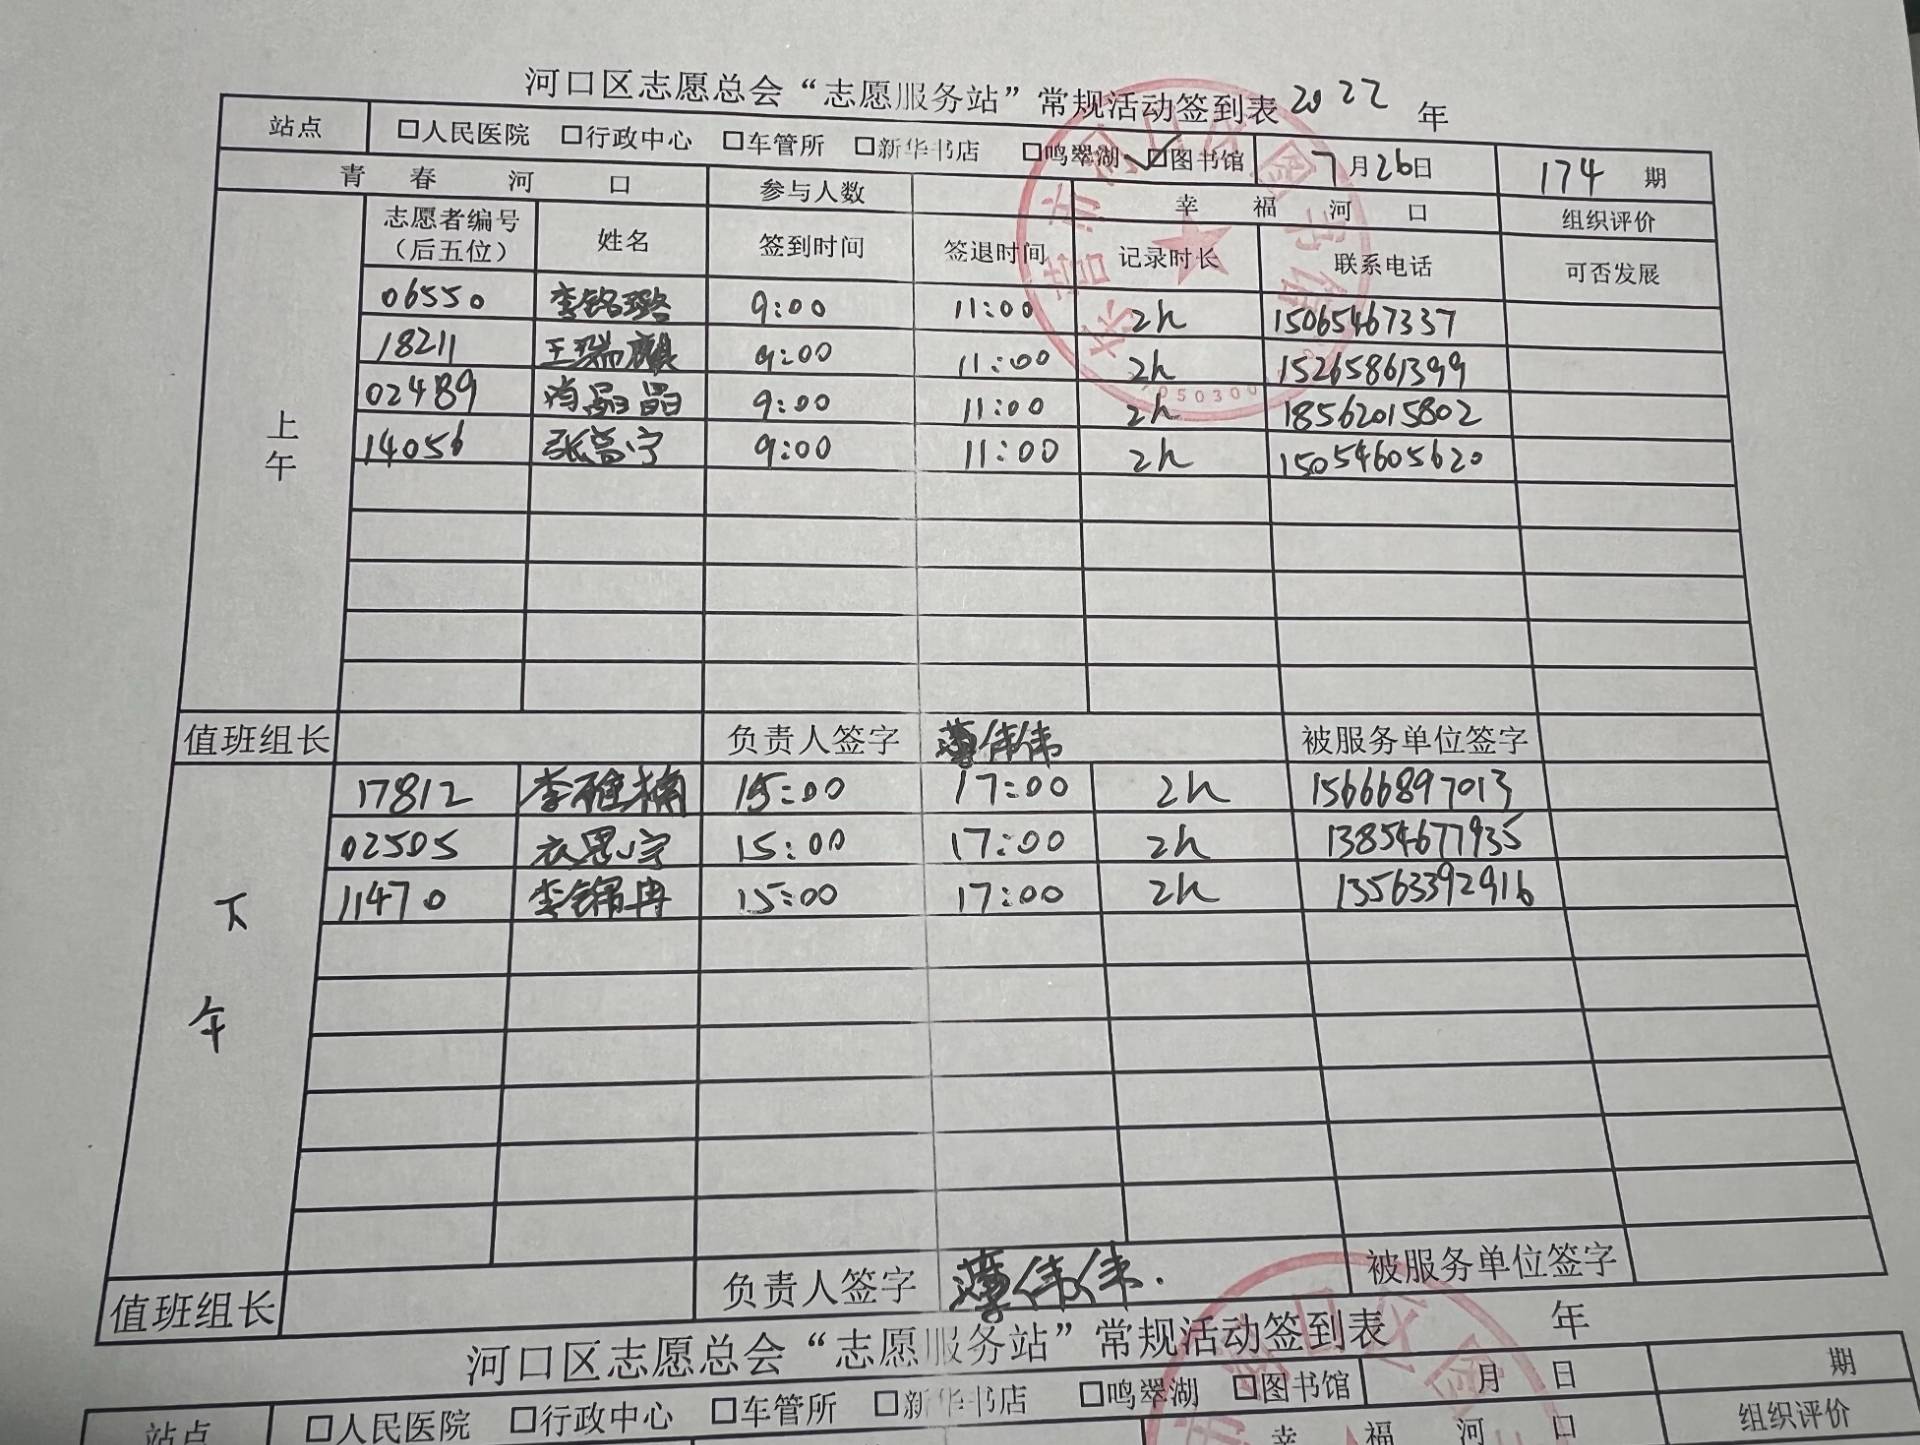 河口区志愿总会“志愿服务站”常规活动签到表 2022 年
站点 □人民医院 □行政中心 □车管所 □新华书店 □鸣翠湖 ☑图书馆 7月26日 174 期
青春河口 参与人数 幸福河口 组织评价
志愿者编号（后五位） 姓名 签到时间 签退时间 记录时长 联系电话 可否发展
上午
06550 李铭璐 9:00 11:00 2h 15065467337
18211 王瑞麒 9:00 11:00 2h 15265861399
02489 肖晶晶 9:00 11:00 2h 18562015802
14056 张嘉宁 9:00 11:00 2h 15054605620
值班组长 负责人签字 薄伟伟 被服务单位签字
下午
17812 李雅楠 15:00 17:00 2h 15666897013
02505 衣思宇 15:00 17:00 2h 13854677935
11470 李锦冉 15:00 17:00 2h 13563392916
值班组长 负责人签字 薄伟伟. 被服务单位签字
河口区志愿总会“志愿服务站”常规活动签到表 年
站点 □人民医院 □行政中心 □车管所 □新华书店 □鸣翠湖 □图书馆 月 日 期
幸福河口 组织评价